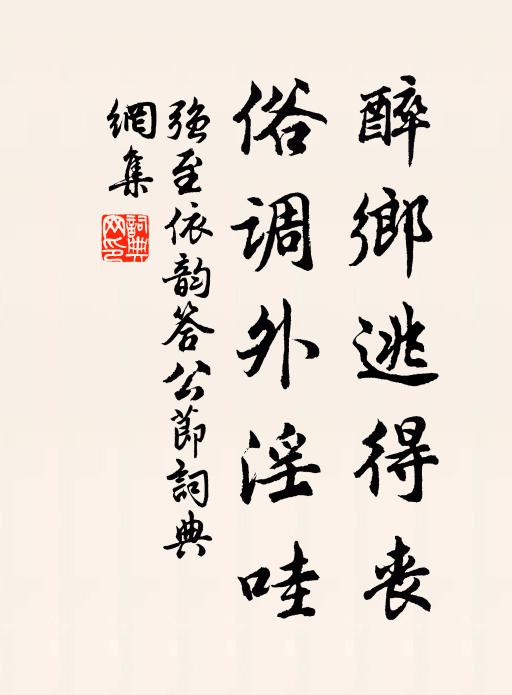 醉鄉逃得喪
俗調外淫哇
強至依韵答公節詞典
網集
詞典網印